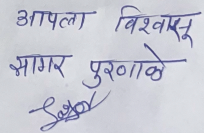 आपला विश्वासू
सागर पुरनाके